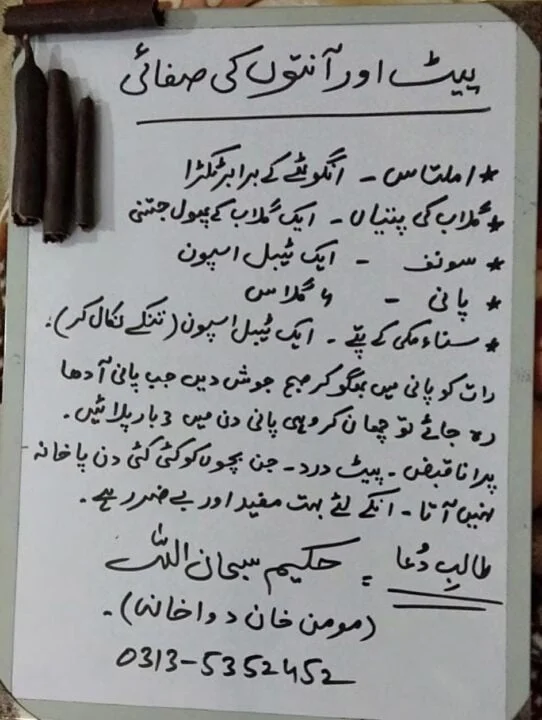 پیٹ اور آنتوں کی صفائی
* املتاس - انگوٹھے کے برابر ٹکڑا
* گلاب کی پتیاں - ایک گلاب کے پھول جتنی
* سونف - ایک ٹیبل اسپون
* پانی - 4 گلاس
* سناء مکی کے پتے - ایک ٹیبل اسپون (تنکے نکال کر).
رات کو پانی میں بھگو کر صبح جوش دیں جب پانی آدھا
رہ جائے تو چھان کر وہی پانی دن میں 3 بار پلائیں.
پرانا قبض - پیٹ درد - جن بچوں کو کئی کئی دن پاخانہ
نہیں آتا - انکے لئے بہت مفید اور بے ضرر ہے.
طالبِ دُعا = حکیم سبحان اللہ
(مومن خان دواخانہ).
0313-5352452